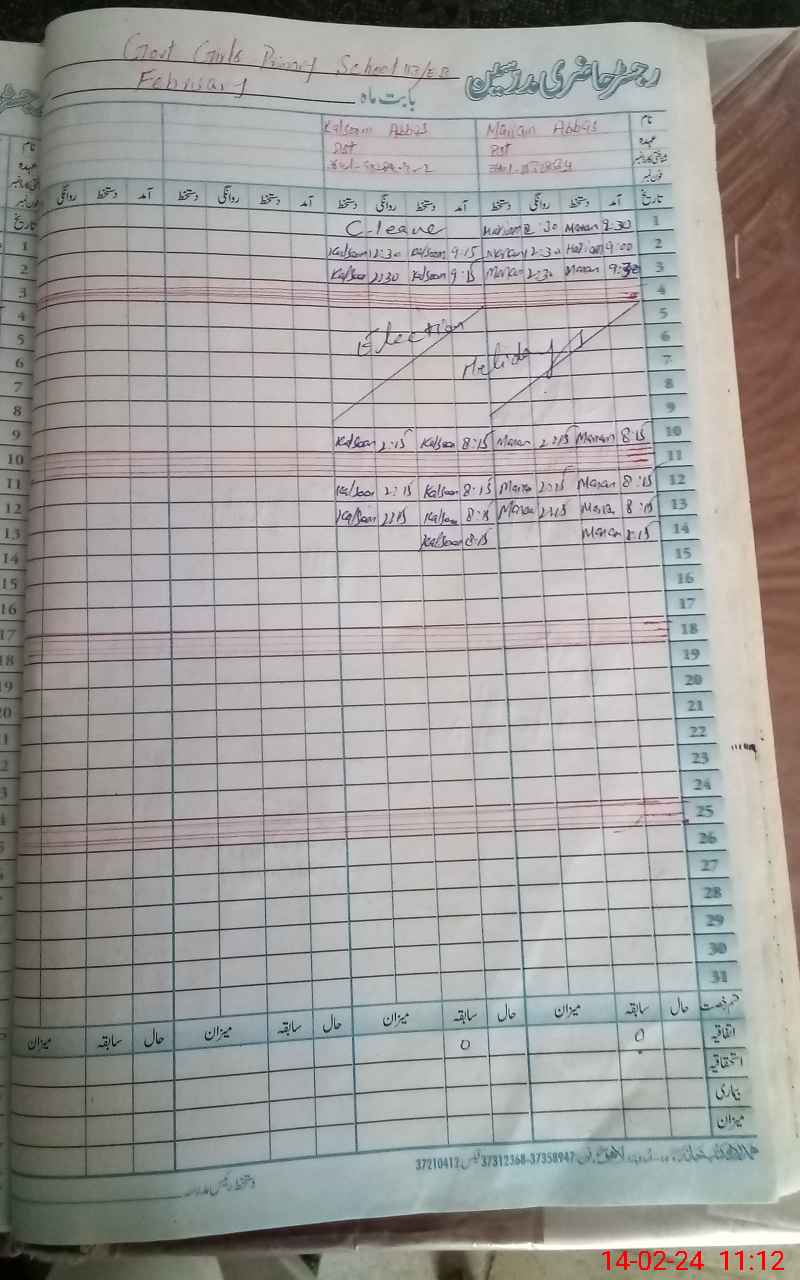 Govt Girls Primary School 113/EB
رجسٹر حاضری مدرسین
February بابت ماہ
Kalsoom Abbas Mariam Abbas نام
PST PST عہدہ
فون نمبر
تاریخ آمد دستخط روانگی دستخط آمد دستخط روانگی دستخط آمد دستخط روانگی دستخط آمد دستخط روانگی
C-leave Mariam 2:30 Mariam 9:30 1
Kalsoom 12:30 Kalsoom 9:15 Mariam 12:30 Mariam 9:00 2
Kalsoom 2:30 Kalsoom 9:15 Mariam 2:30 Mariam 9:30 3
4
5
Election 6
Holiday 7
8
9
Kalsoom 2:15 Kalsoom 8:15 Mariam 2:15 Mariam 8:15 10
11
Kalsoom 2:15 Kalsoom 8:15 Mariam 2:15 Mariam 8:15 12
Kalsoom 2:15 Kalsoom 8:15 Mariam 2:15 Mariam 8:15 13
Kalsoom 8:15 Mariam 8:15 14
15
16
17
18
19
20
21
22
23
24
25
26
27
28
29
30
31
قسم رخصت حال سابقہ میزان حال سابقہ میزان حال سابقہ میزان حال سابقہ میزان
اتفاقیہ 0 0
استحقاقیہ
بیماری
میزان
لاہور فون: 37358947-37312368 فیکس 37210412
دستخط رئیس مدرسہ
14-02-24 11:12